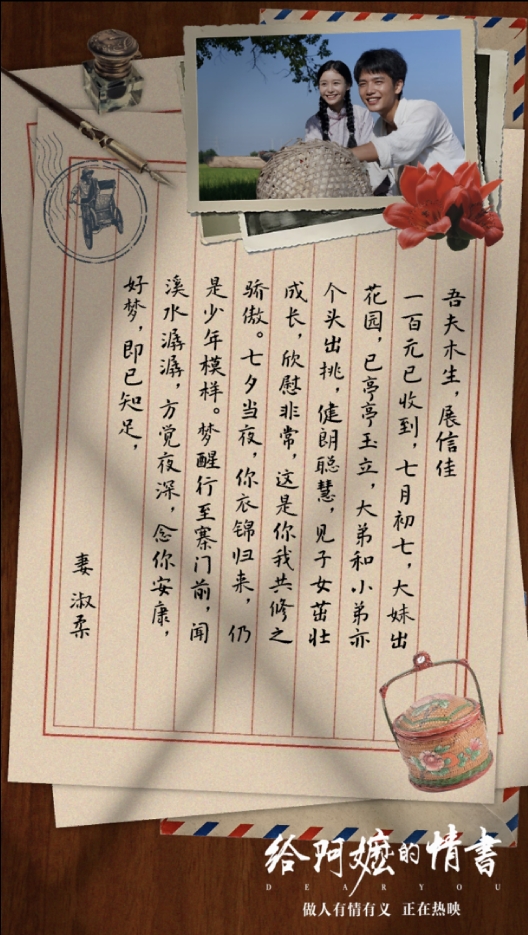 吾夫木生，展信佳
一百元已收到，七月初七，大妹出
花园，已亭亭玉立，大弟和小弟亦
个头出挑，健朗聪慧，见子女茁壮
成长，欣慰非常，这是你我共修之
骄傲。七夕当夜，你衣锦归来，仍
是少年模样。梦醒行至寨门前，闻
溪水潺潺，方觉夜深，念你安康，
好梦，即已知足，
妻 淑柔
给阿嬷的情書
DEAR YOU
做人有情有义 正在热映